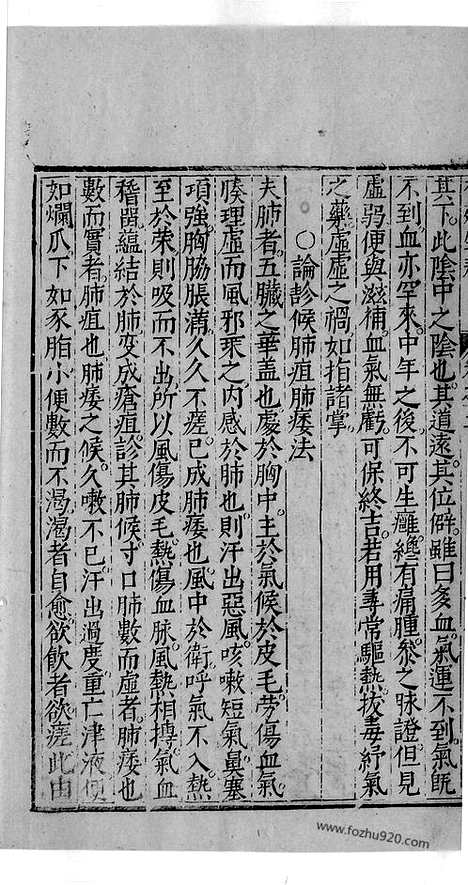 其下此陰中之陰也其道遠其位僻雖曰多血氣運不到氣既
不到血亦罕來中年之後不可生癰纔有痛腫參之脉證但見
虛弱便與滋補血氣無虧可保終吉若用尋常驅熱拔毒紓氣
之藥虛虛之禍如指諸掌
○論診候肺疽肺痿法
夫肺者五臟之華盖也處於胸中主於氣候於皮毛勞傷血氣
腠理虛而風邪乘之内感於肺也則汗出惡風咳嗽短氣鼻塞
項強胸脇脹滿久久不瘥已成肺痿也風中於衛呼氣不入熱
至於榮則吸而不出所以風傷皮毛熱傷血脉風熱相摶氣血
稽留蘊結於肺变成瘡疽診其肺候寸口肺數而虛者肺痿也
數而實者肺疽也肺痿之候久嗽不已汗出過度重亡津液便
如爛爪下如豕脂小便數而不渴渴者自愈欲飲者欲瘥此由
www.fozhu920.com